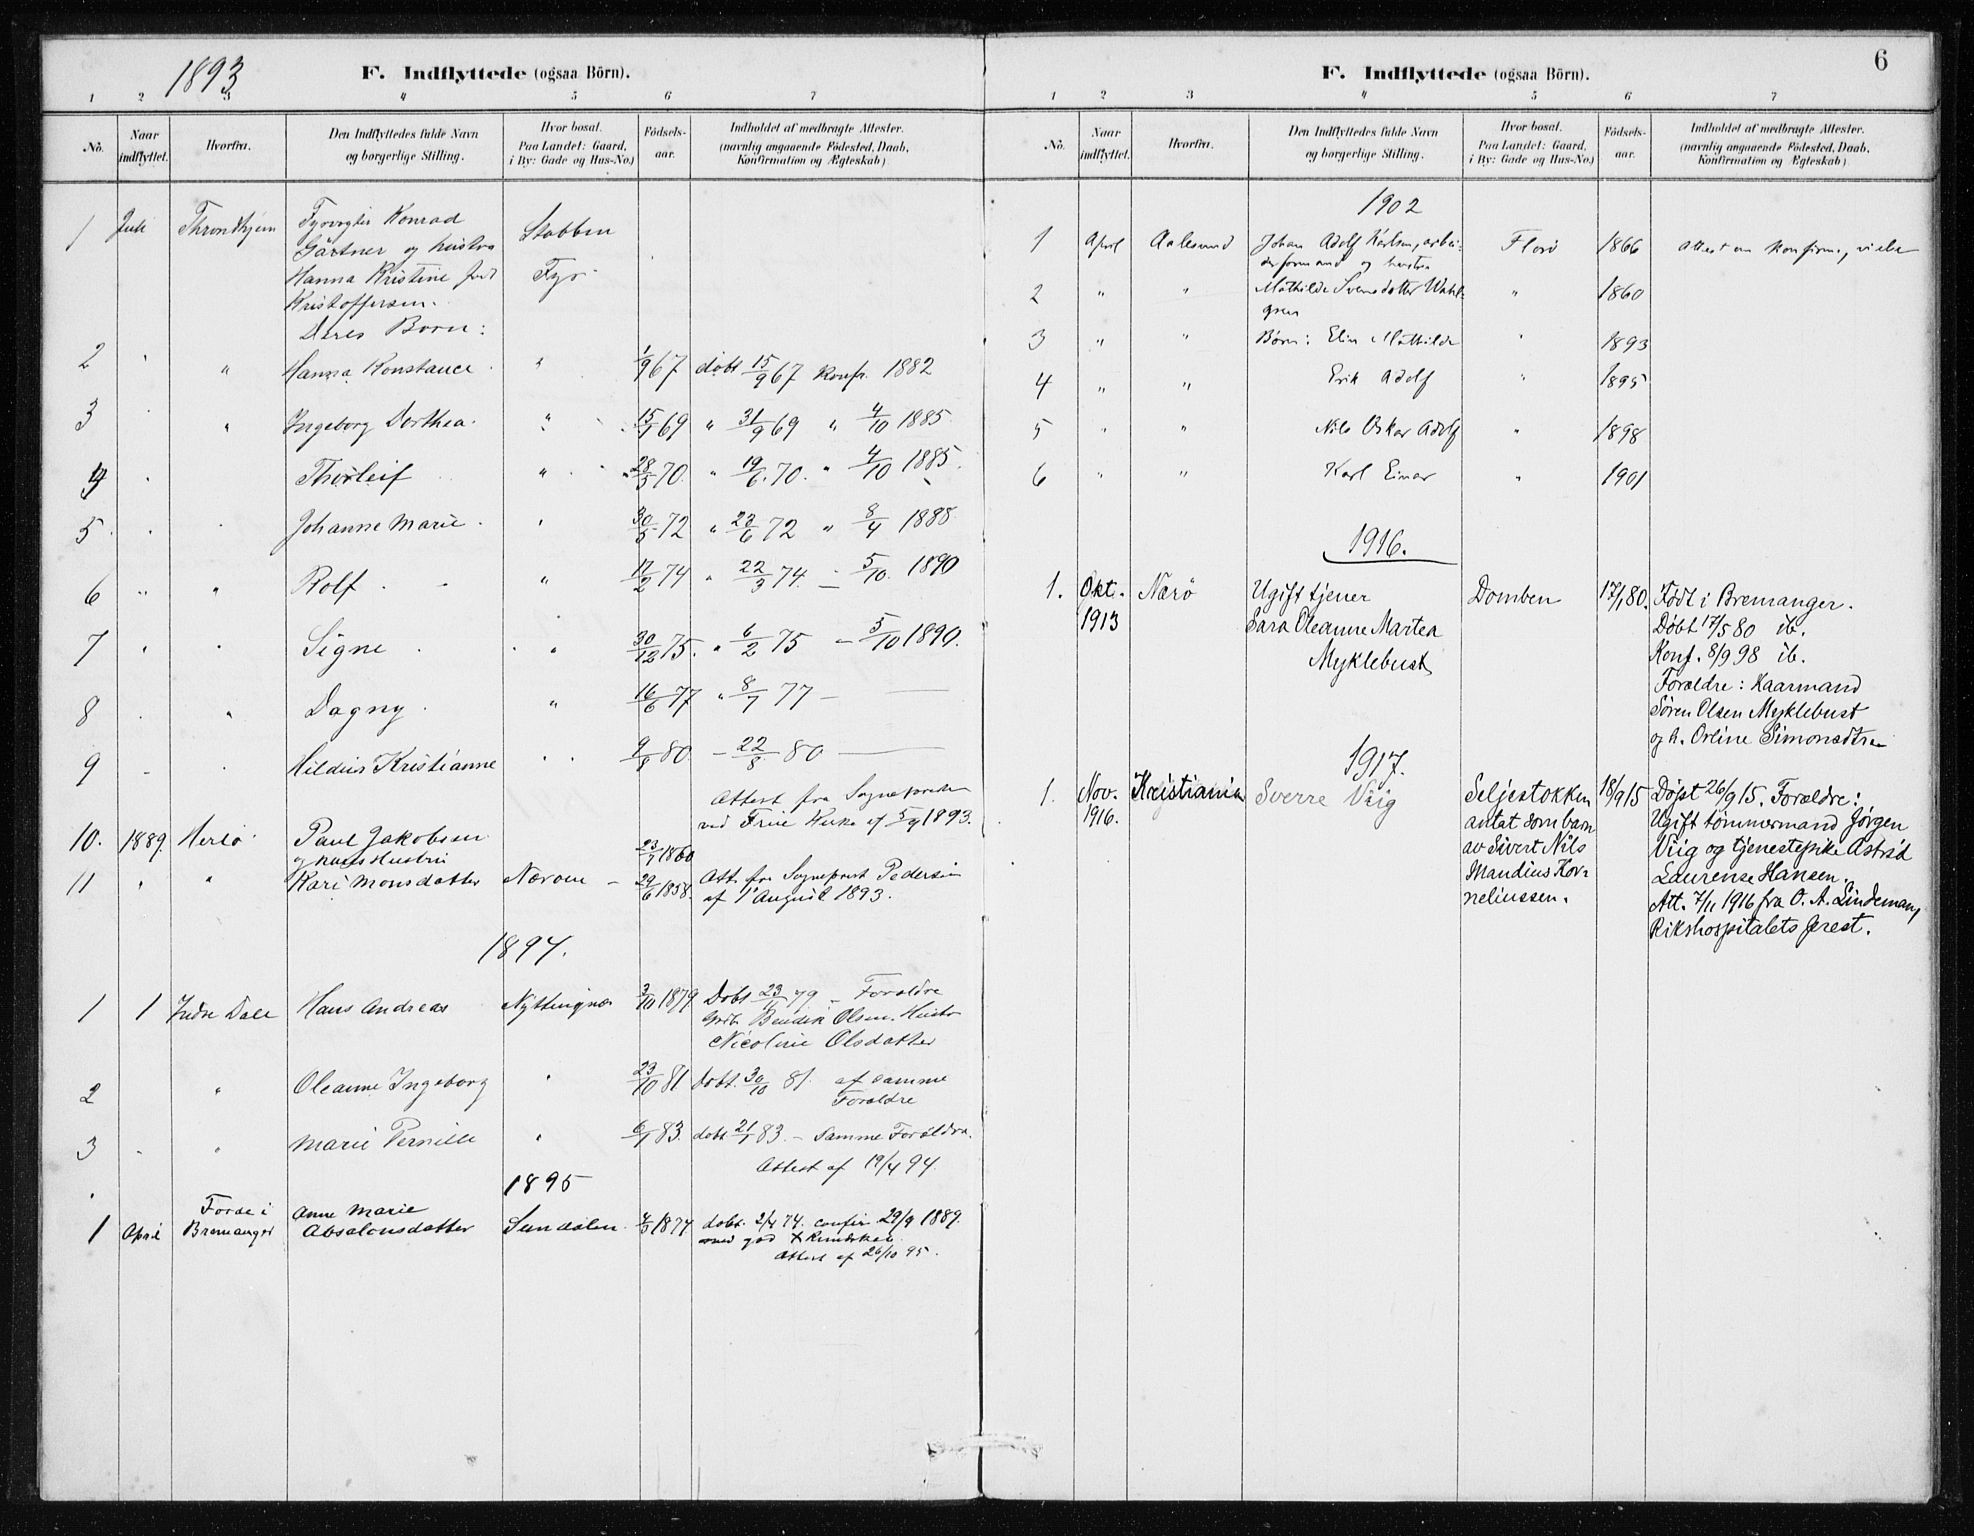 1893
F. Indflyttede (ogsaa Börn).
1 2 3 4 5 6 7
No. Naar indflyttet. Hvorfra. Den Indflyttedes fulde Navn og borgerlige Stilling. Hvor bosat. Paa Landet: Gaard, i By: Gade og Hus-No.) Födsels-aar. Indholdet af medbragte Attester. (navnlig angaaende Födested, Daab, Konfirmation og Ægteskab)
1 Juli Throndhjem Fyrvogter Konrad Stabben
Gärtner og hustru
Hanna Kristine født Fyr
Kristoffersen.
Deres Børn:
2 " " Hanna Konstance " 1/9 67 döbt 15/9 67 Konf. 1882
3 " " Ingeborg Dorthea " 15/7 69 " 31/9 69 " 4/10 1885
4 " Thorleif " 28/5 70 " 19/6 70 " 4/10 1885
5 " " Johanne Marie " 30/5 72 " 23/6 72 " 8/4 1888
6 " " Rolf " 17/2 74 " 22/3 74 – 5/10 1890
7 " " Signe " 30/12 75 " 6/2 75 – 5/10 1890.
8 " " Dagny " 16/6 77 " 8/7 77 –
9 " " Hildur Kristianne " 9/7 80 – 22/8 80 –
Attest fra Sognepresten
ved Frue Kirke af 5/9 1893.
10. 1889 Herlö Paul Jakobsen 23/7 1860
og hans Hustru
11 " " Kari Monsdatter Nærøen – 29/6 1858. Att. fra Sogneprest Pedersen
af 1 August 1893.
1894.
1 1 Indre Dale Hans Andreas Nyttingnæs 3/10 1879 Døbt 23/11 79 – Foraldre
Gdbr. Bendik Olsen. Hustru
Nicoline Olsdatter
2 " Oleanne Ingeborg " 23/10 81 Døbt. 30/10 81. af samme
Foraldre
3 " " Marie Pernille " 6/1 83. døbt 21/1 83 – Samme Foraldre.
Attest af 19/4 94.
1895
1 April Førde i Bremanger Anne Marie Absalonsdatter Sundalen 4/3 1874 døbt. 2/4 74. confir 29/9 1889.
med god Kundskab.
Attest af 26/10 95.
6
F. Indflyttede (ogsaa Börn).
1 2 3 4 5 6 7
No. Naar indflyttet. Hvorfra. Den Indflyttedes fulde Navn og borgerlige Stilling. Hvor bosat. Paa Landet: Gaard, i By: Gade og Hus-No.) Födsels-aar. Indholdet af medbragte Attester. (navnlig angaaende Födested, Daab, Konfirmation og Ægteskab)
1902
1 April Aalesund Johan Adolf Karlsen, arbei- Florö 1866 attest om konfirm., vielse
derformand og hustru
2 " " Mathilde Svensdatter Wahl- " 1860
gren
3 " " Børn: Elin Mathilde " 1893
4 " " Erik Adolf " 1895
5 " " Nils Oskar Adolf " 1898
6 " " Karl Einar " 1901
1916.
1. Okt. Nærö Ugift tjener Domben 17/1 80. Født i Bremanger.
1913 Sara Oleanne Martea Döbt 17/5 80 ib.
Myklebust Konf. 8/9 98 ib.
Forældre: Kaarmand
Søren Olsen Myklebust
og h. Orline Simonsdtr.
1917.
1. Nov. Kristiania Sverre Viig Seljestokken 18/9 15 Døpt 26/9 15. Forældre:
1916. antat som barn Ugift tømmermand Jørgen
av Sivert Nils Viig og tjenestepike Astrid
Mandius Kor- Laurense Hansen.
neliussen. Att. 7/11 1916 fra O. A. Lindeman,
Rikshospitalets prest.